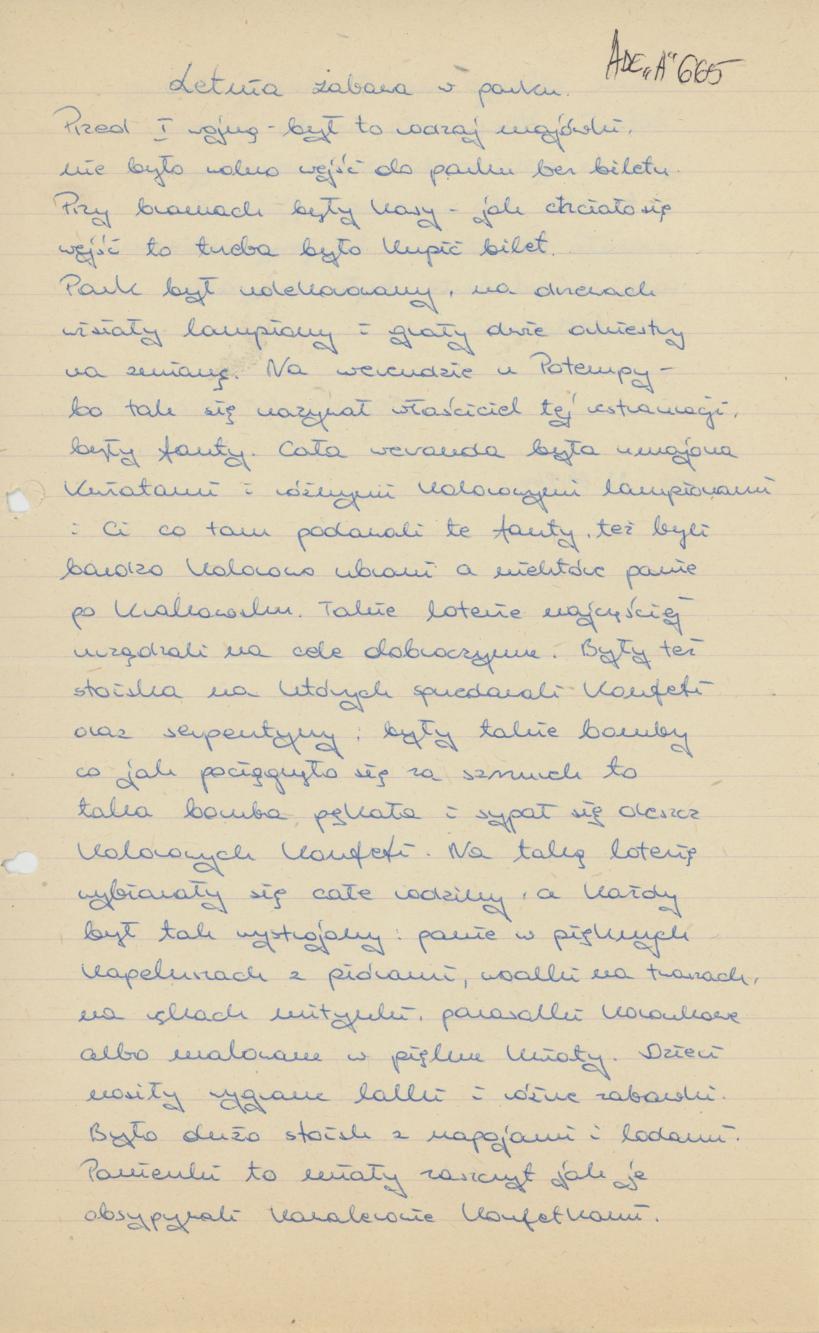 ADE„A" 665
Letnia zabawa w parku.
Przed I wojną - był to rodzaj majówki,
nie było wolno wejść do parku bez biletu.
Przy bramach były kasy - jak chciało się
wejść to trzeba było kupić bilet.
Park był udekorowany, na drzewach
wisiały lampiony i grały dwie orkiestry
na zmianę. Na werendzie u Potempy -
bo tak się nazywał właściciel tej restauracji,
były fanty. Cała weranda była umajona
kwiatami i różnymi kolorowymi lampionami
i Ci co tam podawali te fanty, też byli
bardzo kolorowo ubrani a niektóre panie
po krakowsku. Takie loterie najczęściej
urządzali na cele dobroczynne. Były też
stoiska na których sprzedawali konfeti
oraz serpentyny i były takie bomby
co jak pociągnęło się za sznurek to
taka bomba pękała i sypał się deszcz
kolorowych konfeti. Na taką loterię
wybierały się całe rodziny, a każdy
był tak wystrojony: panie w pięknych
kapeluszach z piórami, woalki na twarzach,
na rękach mitynki, parasolki koronkowe
albo malowane w piękne kwiaty. Dzieci
nosiły wygrane lalki i różne zabawki.
Było dużo stoisk z napojami i lodami.
Panienki to miały zaszczyt jak je
obsypywali kawalerowie konfetkami.